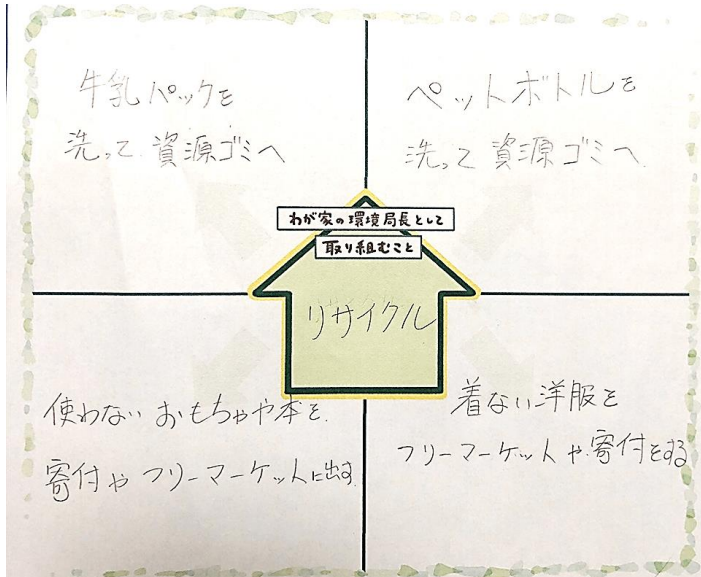 牛乳パックを
洗って資源ゴミへ
ペットボトルを
洗って資源ゴミへ
わが家の環境局長として
取り組むこと
リサイクル
使わないおもちゃや本を
寄付やフリーマーケットに出す
着ない洋服を
フリーマーケットや寄付をする